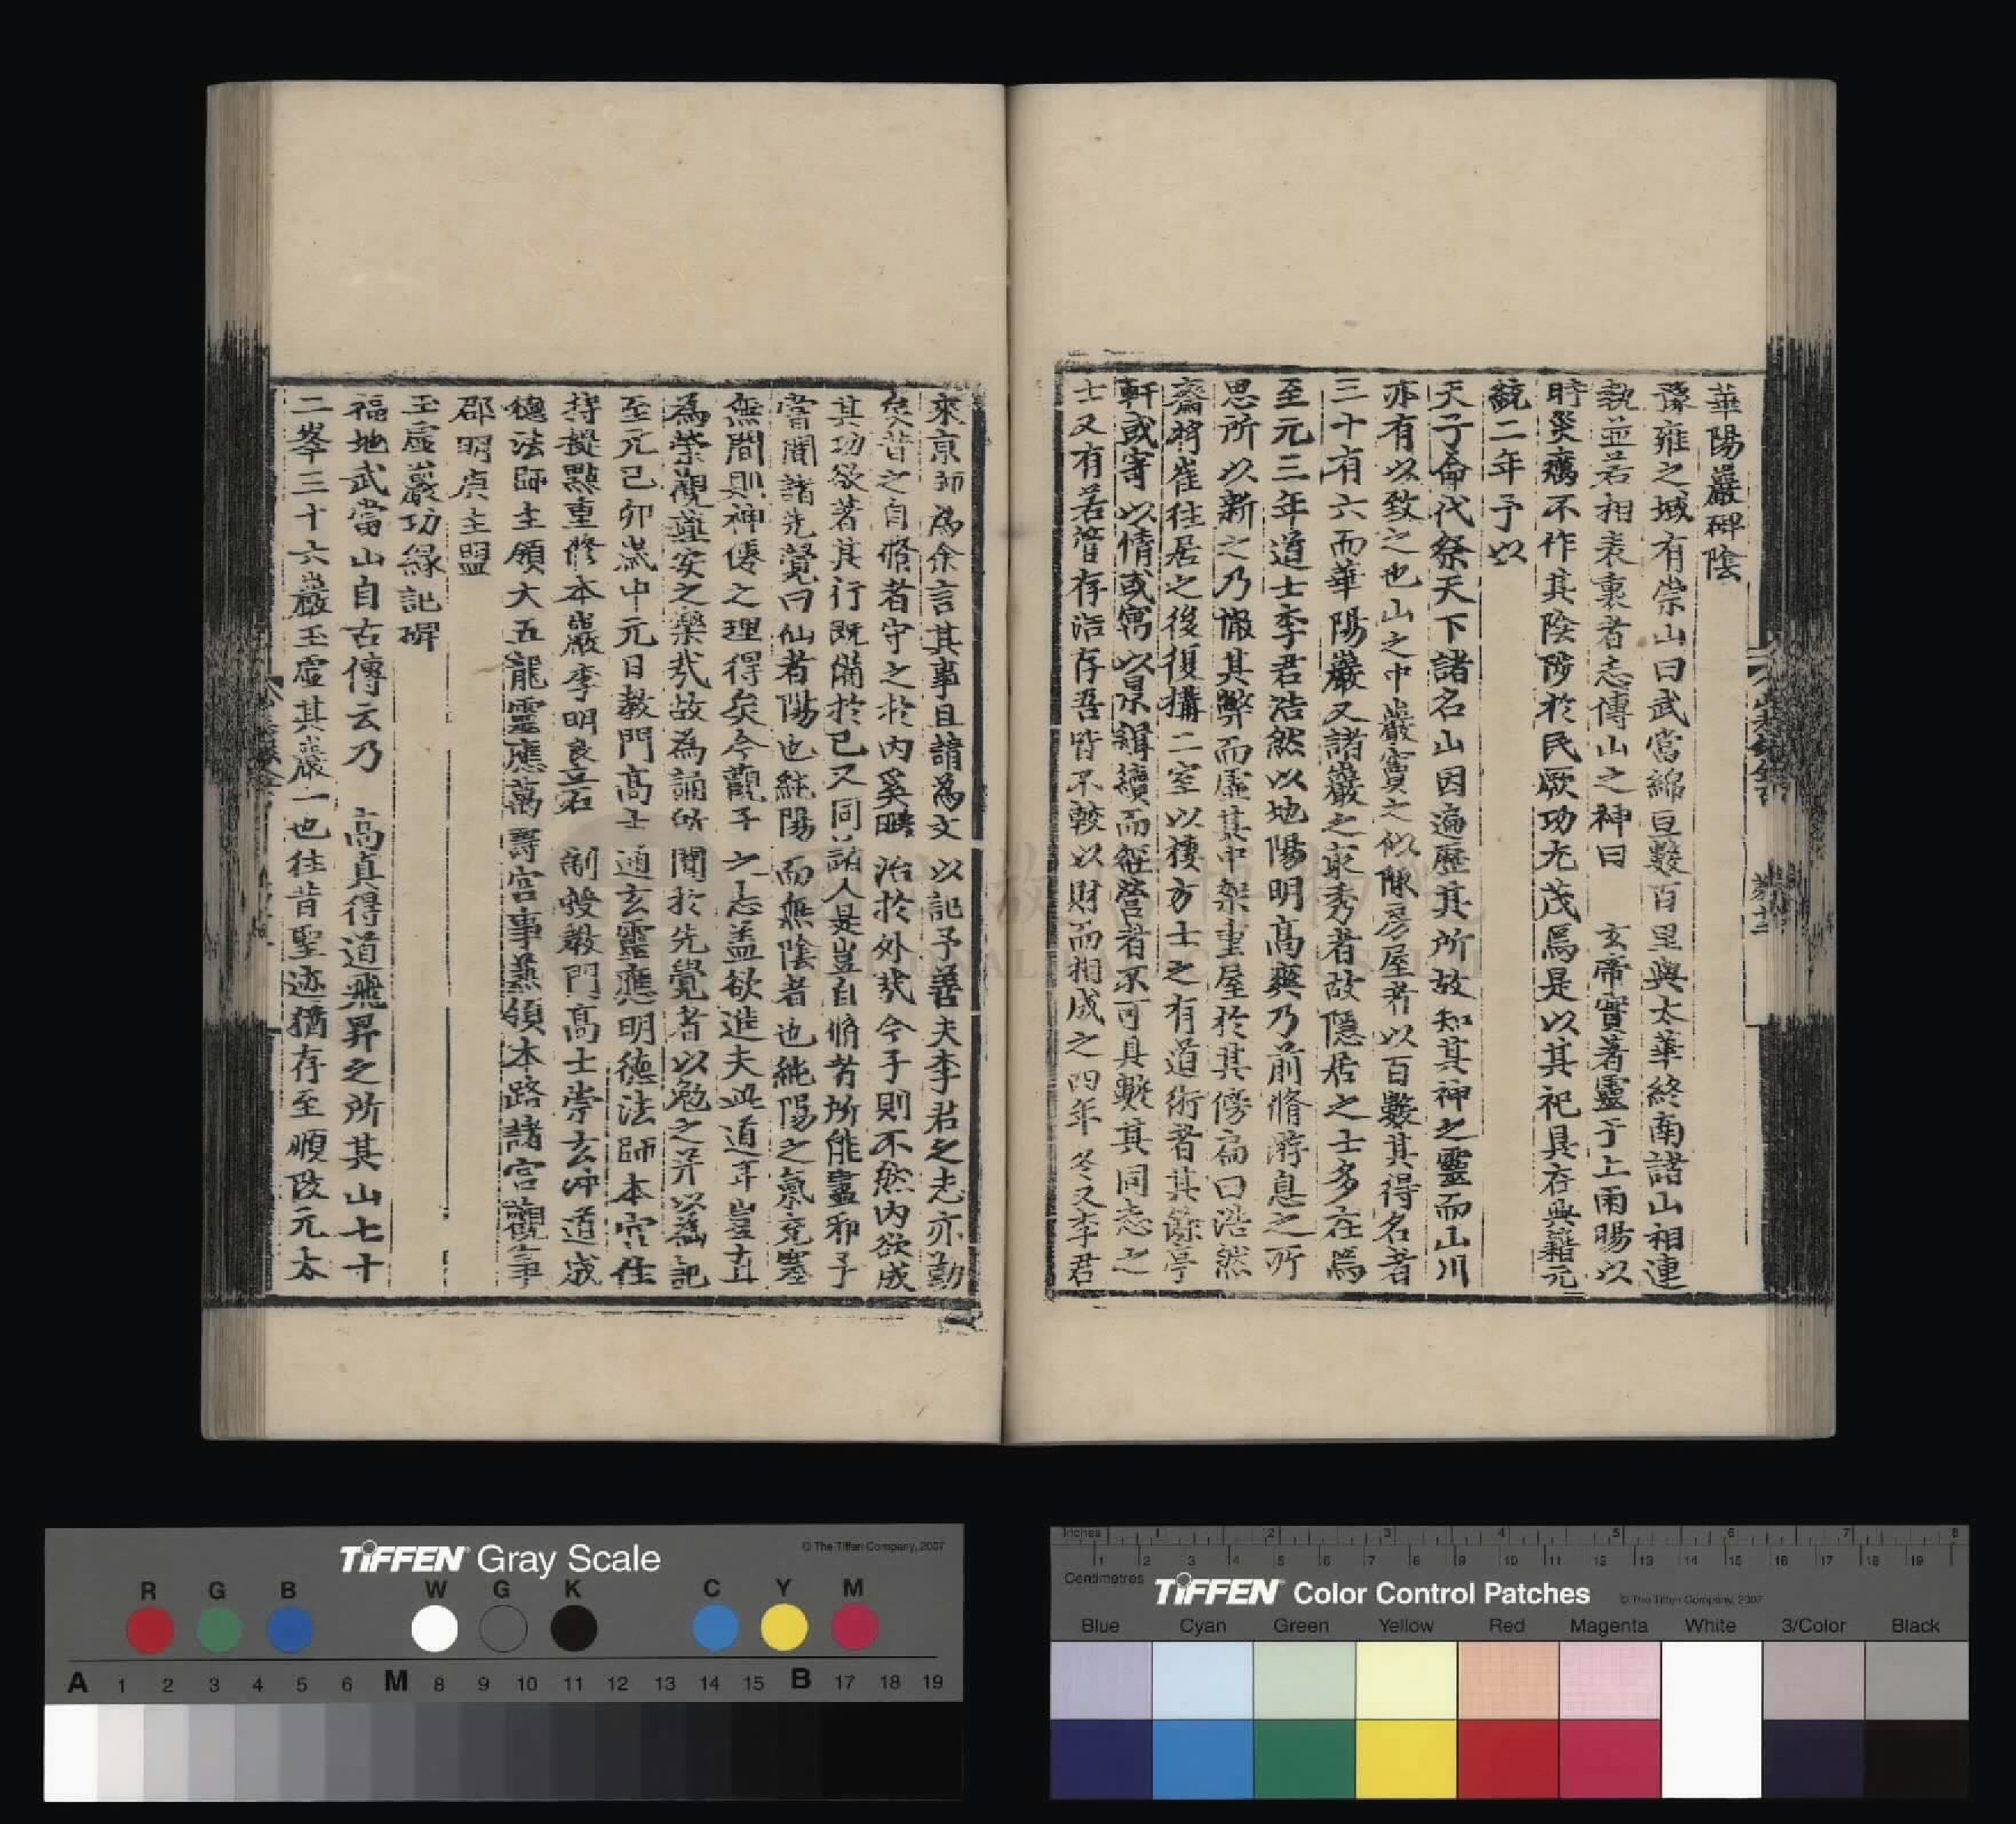 華陽巖碑陰
豫雍之域有崇山曰武當綿亘數百里與太華終南諸山相連
執並若相表裏者志傳山之神曰 玄帝實著靈于上雨暘以
時災癘不作其陰隲於民厥功尤茂焉是以其祀具存典籍元
統二年予以
天子命代祭天下諸名山因遍歷其所故知其神之靈而山川
亦有以致之也山之中巖竇之似隙房屋者以百數其得名者
三十有六而華陽巖又諸巖之最秀者故隱居之士多在焉
至元三年道士李君浩然以地陽明高爽乃前脩游息之所
思所以新之乃撤其弊而虛其中架重屋於其傍扁曰浩然
齋將崔往居之後復構二室以棲方士之有道術者其餘亭
軒或寄以情或寓以景緝續而經營者不可具數其同志之
士又有若菅存浩存吾皆不較以財而相成之四年冬又李君
來京師為余言其事且請為文以記予善夫李君之志亦勤
矣昔之自脩者守之於內奚暇治於外哉今子則不然內欲成
其功欲著其行既備於己又同諸人是豈自脩者所能盡邪予
嘗聞諸先覺曰仙者陽也純陽而無陰者也純陽之氣充塞
無間則神僊之理得矣今觀子之志盖欲造夫此道耳豈
為榮觀燕安之樂哉故為誦所聞於先覺者以勉之并以為記
至元己卯歲中元日教門高士通玄靈應明德法師本宮住
持提點重修本巖李明良立石 制授教門高士崇玄沖道成
德法師主領大五龍靈應萬壽宮事兼領本路諸宮觀事
邵明庚主盟
玉虛巖功緣記碑
福地武當山自古傳云乃 高真得道飛昇之所其山七十
二峯三十六巖玉虛其巖一也往昔聖迹猶存至順改元太
TIFFEN Gray Scale
© The Tiffen Company, 2007
R G B W G K C Y M
A 1 2 3 4 5 6 M 8 9 10 11 12 13 14 15 B 17 18 19
Inches 1 2 3 4 5 6 7 8
1 2 3 4 5 6 7 8 9 10 11 12 13 14 15 16 17 18 19
Centimetres
TIFFEN Color Control Patches
© The Tiffen Company, 2007
Blue Cyan Green Yellow Red Magenta White 3/Color Black